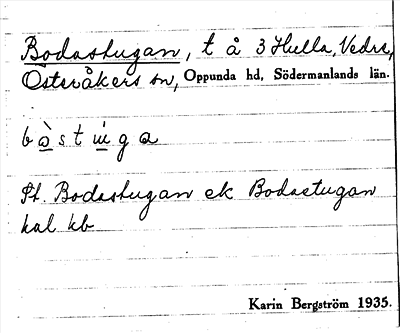 Bodastugan, t å 3 Hulla, Vedre,
Österåkers sn, Oppunda hd, Södermanlands län.
bàstùga
St. Bodastugan ek Bodastugan
kal kb
Karin Bergström 1935.